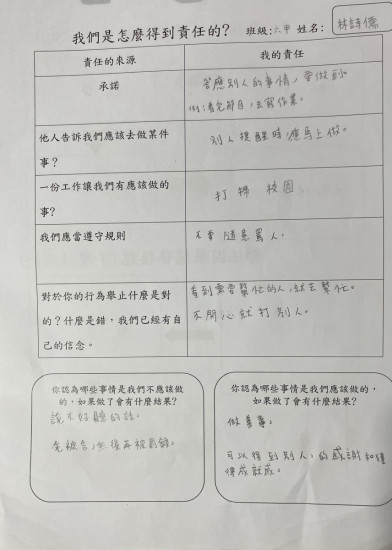 我們是怎麼得到責任的? 班級:六甲 姓名: 林詩儒
責任的來源 我的責任
承諾
答應別人的事情,要做到。
例:看完節目,去寫作業。
他人告訴我們應該去做某件
事?
別人提醒時應馬上做。
一份工作讓我們有應該做的
事?
打掃 校園
我們應當遵守規則
不要隨意罵人。
對於你的行為舉止什麼是對
的?什麼是錯,我們已經有自
己的信念。
看到需要幫忙的人,就去幫忙。
不開心就打別人。
你認為哪些事情是我們不應該做
的,如果做了會有什麼結果?
說不好聽的話。
先被告,然後再被罰錢。
你認為哪些事情是我們應該做的,
如果做了會有什麼結果?
做善事。
可以得到別人,的感謝和獲
得成就感。